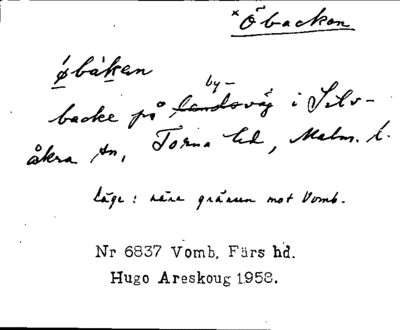 *Öbacken
øbáken
by-
backe på landsväg i Silv-
åkra sn, Torna hd, Malm. l.
Läge: nära gränsen mot Vomb.
Nr 6837 Vomb, Färs hd.
Hugo Areskoug 1958.